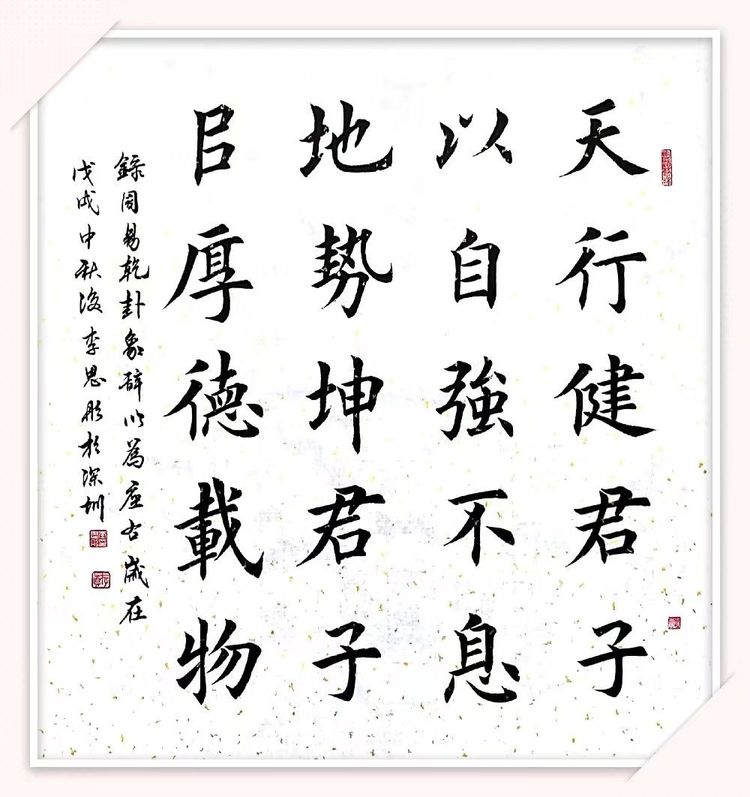 天行健君子
以自強不息
地勢坤君子
㠯厚德載物
錄周易乾卦象辭以為座右歲在
戊戌中秋後李思彤於深圳